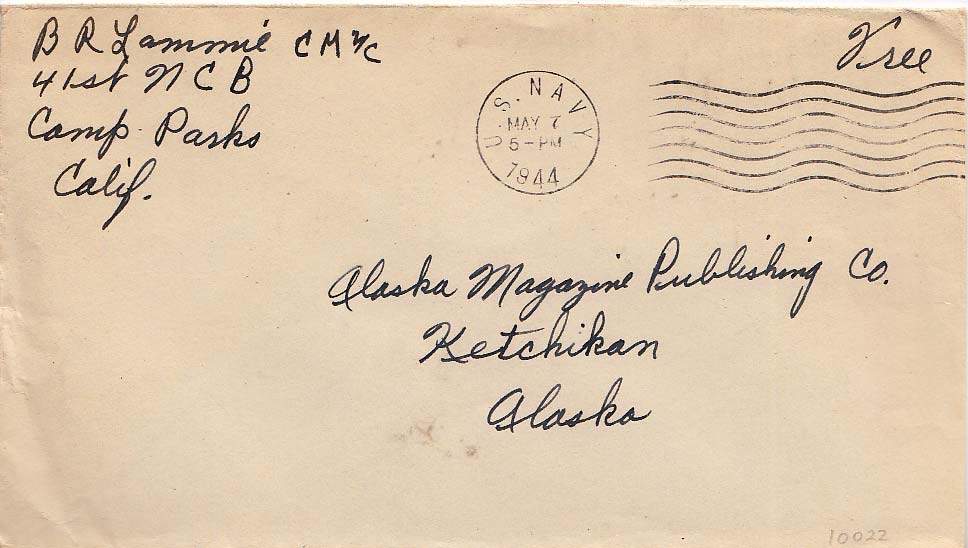 B R Lammie CM 1/C
41st N C B
Camp Parks
Calif.
Free
U.S. NAVY
MAY 7
5-PM
1944
Alaska Magazine Publishing Co.
Ketchikan
Alaska
10022